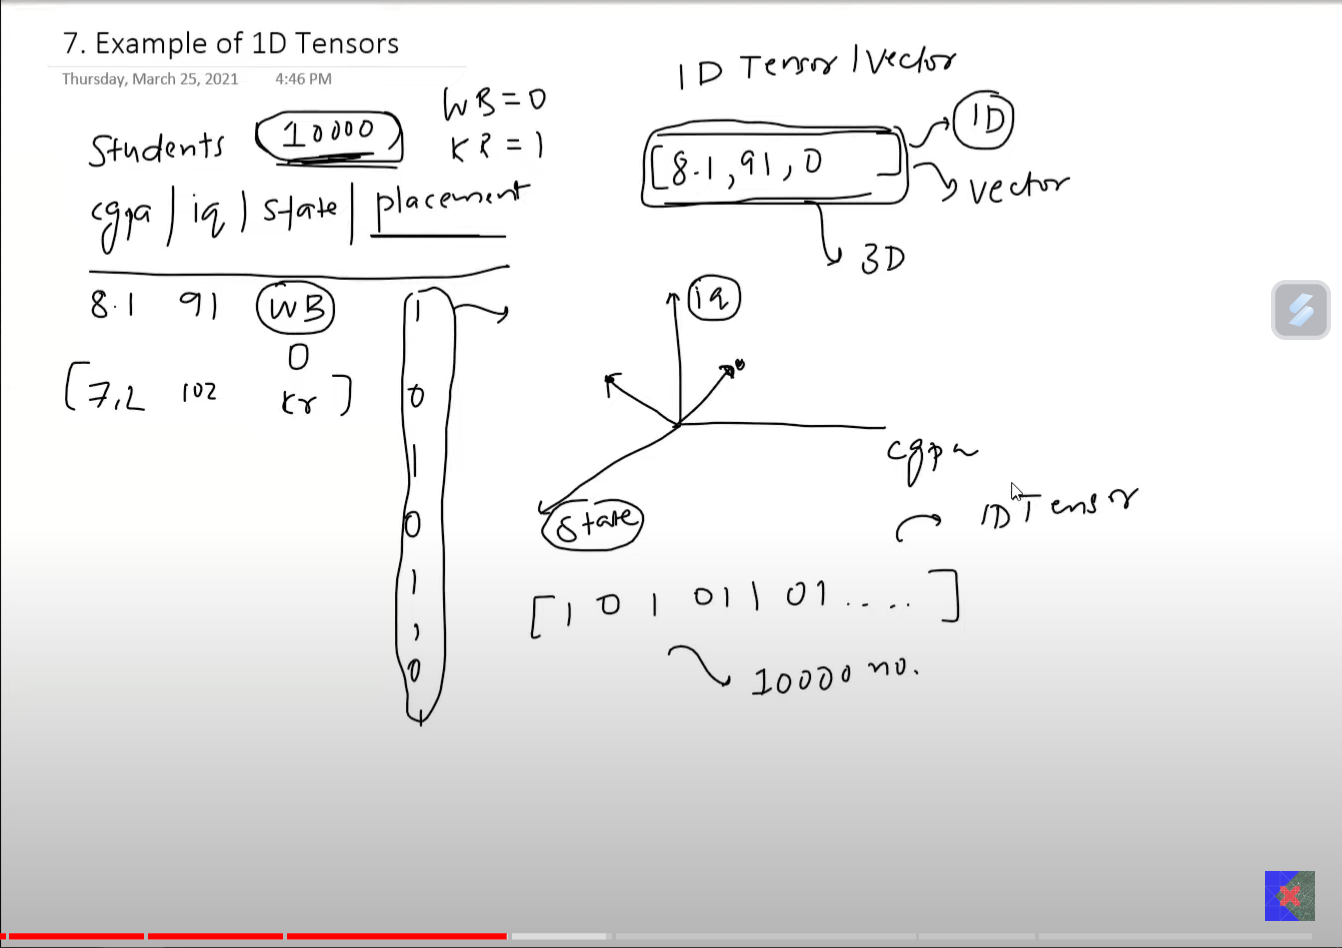 7. Example of 1D Tensors
Thursday, March 25, 2021 4:46 PM
WB = 0
KR = 1
Students 10000
cgpa | iq | state | placement
8.1 91 WB 1
0
[7.2 102 kr] 0
1
0
1
,
0
1D Tensor / Vector
[8.1, 91, 0 ]
1D
vector
3D
iq
cgpa
state
1D Tensor
[1 0 1 0 1 1 0 1 .... ]
10000 no.